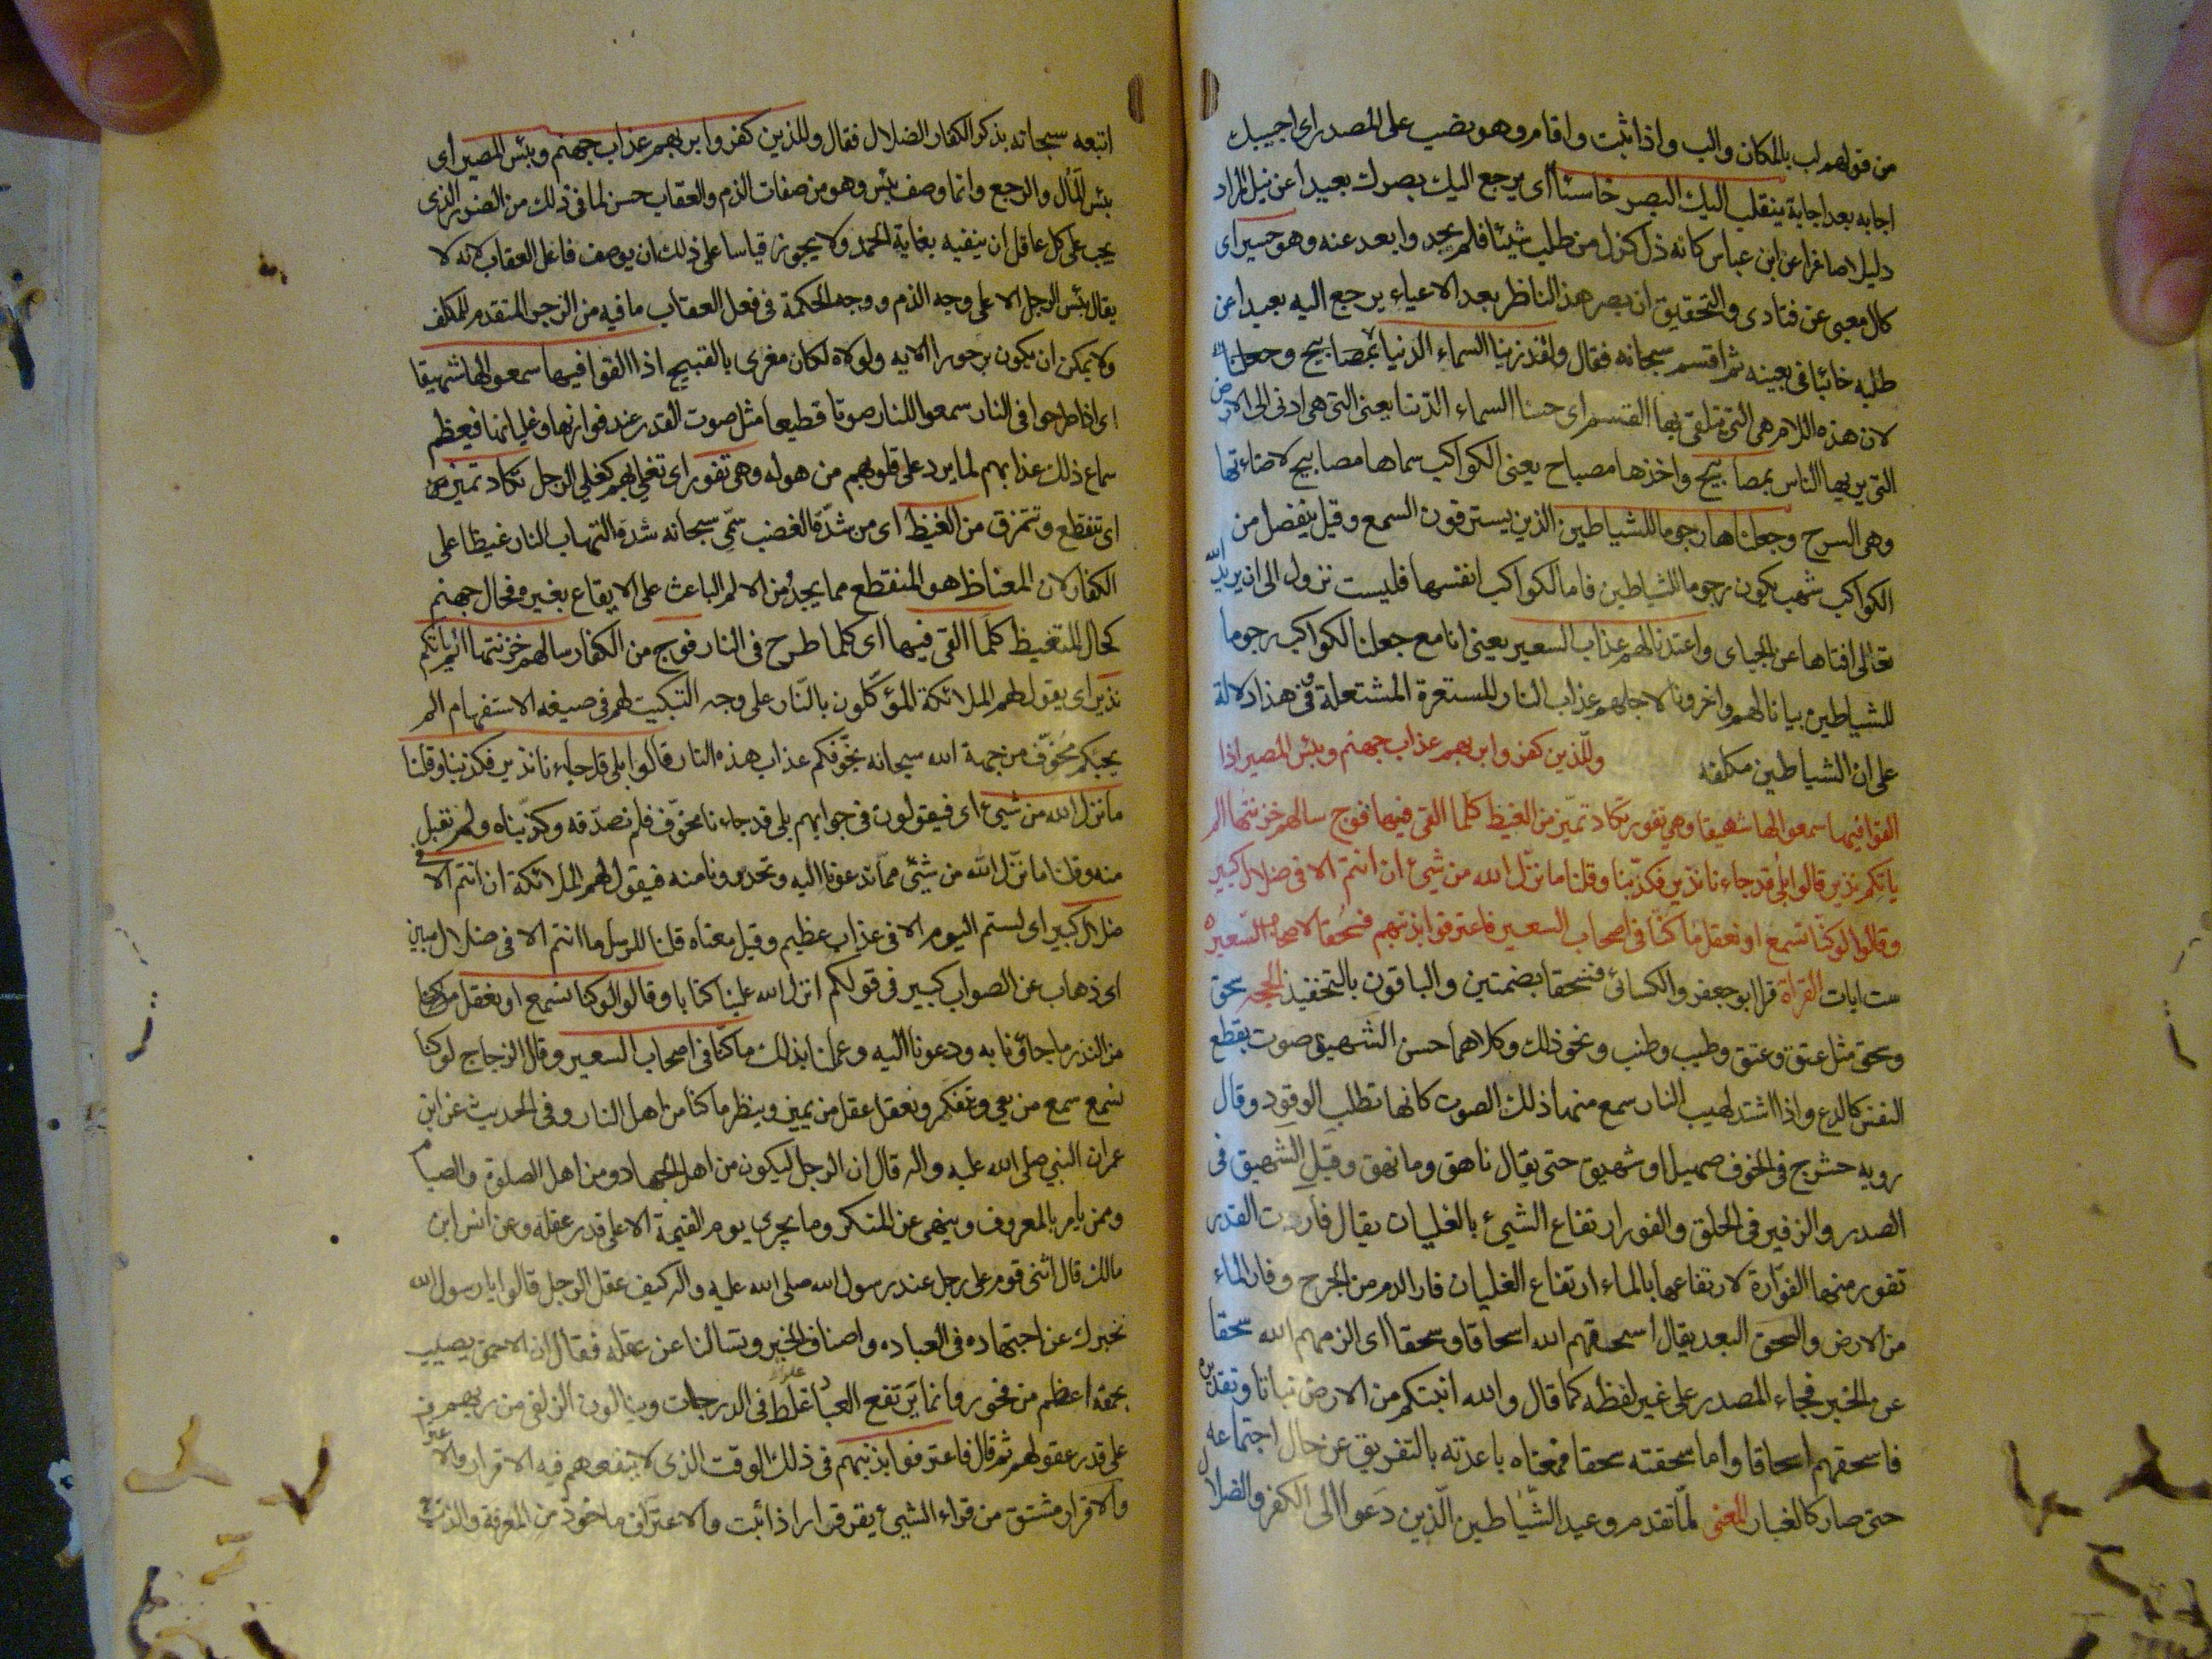 من قولهم لب بالمكان والب واذا ثبت واقام وهو نصب على المصدر اى اجيبك
اجابه بعد اجابة ينقلب اليك البصر خاسئا اى يرجع اليك بصرك بعيدا عن نيل المراد
دليلا صاغرا عن ابن عباس كانه ذل كذل من طلب شيئا فلم يجد وابعد عنه وهو حسير اى
كال معيى عن قتادى والتحقيق ان بصر هذ الناظر بعد الاعياء يرجع اليه بعيدا عن
طلبه خائبا فى بعينه ثم اقسم سبحانه فقال ولقد زينا السماء الدنيا بمصابيح وجعلناه
لان هذه اللام هى التى تتلقى بها القسم اى حسنا السماء الدّنيا يعنى التى هى ادنى الى الارض
التى يريها الناس بمصابيح واخذها مصباح يعنى الكواكب سماها مصابيح لاضائتها
وهى السرج وجعلناها رجوما للشياطين الذين يسترقون السمع وقيل ينفصل من
الكواكب شهب يكون رجوما للشياطين فاما الكواكب انفسها فليست تزول الى ان يريد الله
تعالى افناها عن الجباى واعتدنا لهم عذاب السعير يعنى انا مع جعلنا الكواكب رجوما
للشياطين بيانا لهم واخرونا لاجلهم عذاب النار المستعرة المشتعلة وفى هذا دلالة
على ان الشياطين مكلفه وللّذين كفروا بربهم عذاب جهنم وبئس المصير اذا
القوا فيها سمعوا لها شهيقا وهى تفور تكاد تميّز من الغيظ كلما القى فيها فوج سالهم خزنتها الم
ياتكم نذير قالوا بلى قد جاءنا نذير فكذّبنا وقلنا ما نزّل الله من شيئ ان انتم الا فى ضلال كبير
وقالوا لو كنّا نسمع او نعقل ما كنّا فى اصحاب السعير فاعترفوا بذنبهم فسُحقا لاصحاب السّعيره
ست ايات القراة قرا ابو جعفر والكسائى فسحقا بضمتين والباقون بالتخفيف الحجه سحق
وسحق مثل عتق وعتق وطيب وطنب ونحو ذلك وكلاهما حسن الشهيق صوت بقطع
النفس كالدع واذا اشتد لهيب النار سمع منها ذلك الصوت كانها تطلب الوقود وقال
رويه حشرج فى الخوف صهيلا او شهيق حتى يقال ناهق وما نهق وقيل الشهيق فى
الصدر والزفير فى الحلق والفور ارتفاع الشيئ بالغليان يقال فارت القدر
تفور منها الفوّارة لارتفاعها بالماء ارتفاع الغليان فار الدم من الجرح وفار الماء
من الارض والسحق البعد يقال اسحقهم الله اسحاقا وسحقا اى الزمهم الله سحقا
عن الخير فجاء المصدر على غير لفظه كما قال والله انبتكم من الارض نباتا وتقديره
فاسحقهم اسحاقا واما سحقته سحقا فمعناه باعدته بالتفريق عن حال اجتماعه
حتى صار كالغبار المعنى لمّا تقدم وعيد الشّياطين الّذين دَعوا الى الكفر والضلال
اتبعه سبحانه بذكر الكفار الضلال فقال وللذين كفروا بربهم عذاب جهنم وبئس المصير اى
بئس المآل والرجع وانما وصف بئس وهو من صفات الذم والعقاب حسن لما فى ذلك من الضرر الذى
يجب على كل عاقل ان ينفيه بغاية الجهد ولا يجوز قياسا على ذلك ان يوصف فاعل العقاب لانه لا
يقال بئس الرجل الا على وجه الذم ووجه الحكمة فى فعل العقاب ما فيه من الزجر المتقدم للمكلف
ولا يمكن ان يكون مزجورا الا به ولولاه لكان مغرى بالقبيح اذا القوا فيها سمعوا لها شهيقا
اى اذا طرحوا فى النار سمعوا للنار صوتا فظيعا مثل صوت القدر عند فوارنها وغليانها فيعظم
سماع ذلك عذابهم لما يرد على قلوبهم من هوله وهى تفور اى تغلى بهم كغلى الرجل تكاد تميز من
اى تتقطع وتتمزق من الغيظ اى من شدّة الغضب سمّى سبحانه شدة التهاب النار غيظا على
الكفار لان المغتاظ هو المنقطع مما يجد من الالم الباعث على الايقاع بغيره فحال جهنم
كحال المتغيظ كلّما القى فيها اى كلما طرح فى النار فوج من الكفار سالهم خزنتها الم ياتكم
نذير اى يقول لهم الملائكة المؤكّلون بالنّار على وجه التبكيت لهم فى صيغه الاستفهام الم
يجئكم مُخوّف من جهة الله سبحانه يخوّفكم عذاب هذه النار قالوا بلى قد جاءنا نذير فكذبنا وقلنا
ما نزل الله من شيئ اى فيقولون فى جوابهم بلى قد جاءنا مخوّف فلم نصدّقه وكذّبناه ولم نقبل
منه وقلنا ما نزّل الله من شيئ ممّا تدعونا اليه وتحذرونا منه فيقول لهم الملائكة ان انتم الا فى
ضلال كبير اى لستم اليوم الا فى عذاب عظيم وقيل معناه قلنا للرسل ما انتم الا فى ضلال مبين
اى ذهاب عن الصواب كبير فى قولكم انزل الله علينا كتابا وقالوا لو كنا نسمع او نعقل ما كنا
من النذر ما جاؤنا به ودعونا اليه وعملنا بذلك ما كنّا فى اصحاب السعير وقال الزجاج لو كنا
نسمع سمع من يعى وتفكر ونعقل عقل من يميز وينظر ما كنا من اهل النار وفى الحديث عن ابن
عمر ان النبي صلى الله عليه واله قال ان الرجل ليكون من اهل الجهاد ومن اهل الصلوة والصيام
وممن يامر بالمعروف وينهى عن المنكر وما يجزى يوم القيمة الا على قدر عقله وعن انس ابن
مالك قال اثنى قوم على رجل عند رسول الله صلى الله عليه واله كيف عقل الرجل قالوا يا رسول الله
نخبرك عن اجتهاده فى العباده واصناف الخير وتسالنا عن عقله فقال ان الاحمق يصيب
بحمقه اعظم من فجور وانما يرتفع العباد غدا فى الدرجات وينالون الزلفى من ربهم
على قدر عقولهم ثم قال فاعترفوا بذنبهم فى ذلك الوقت الذى لا ينفعهم فيه الاقرار والا
والاقرار مشتق من قراء الشيئ يقر قرارا اذا ثبت والاعتراف ماخوذ من المعرفة والذنب